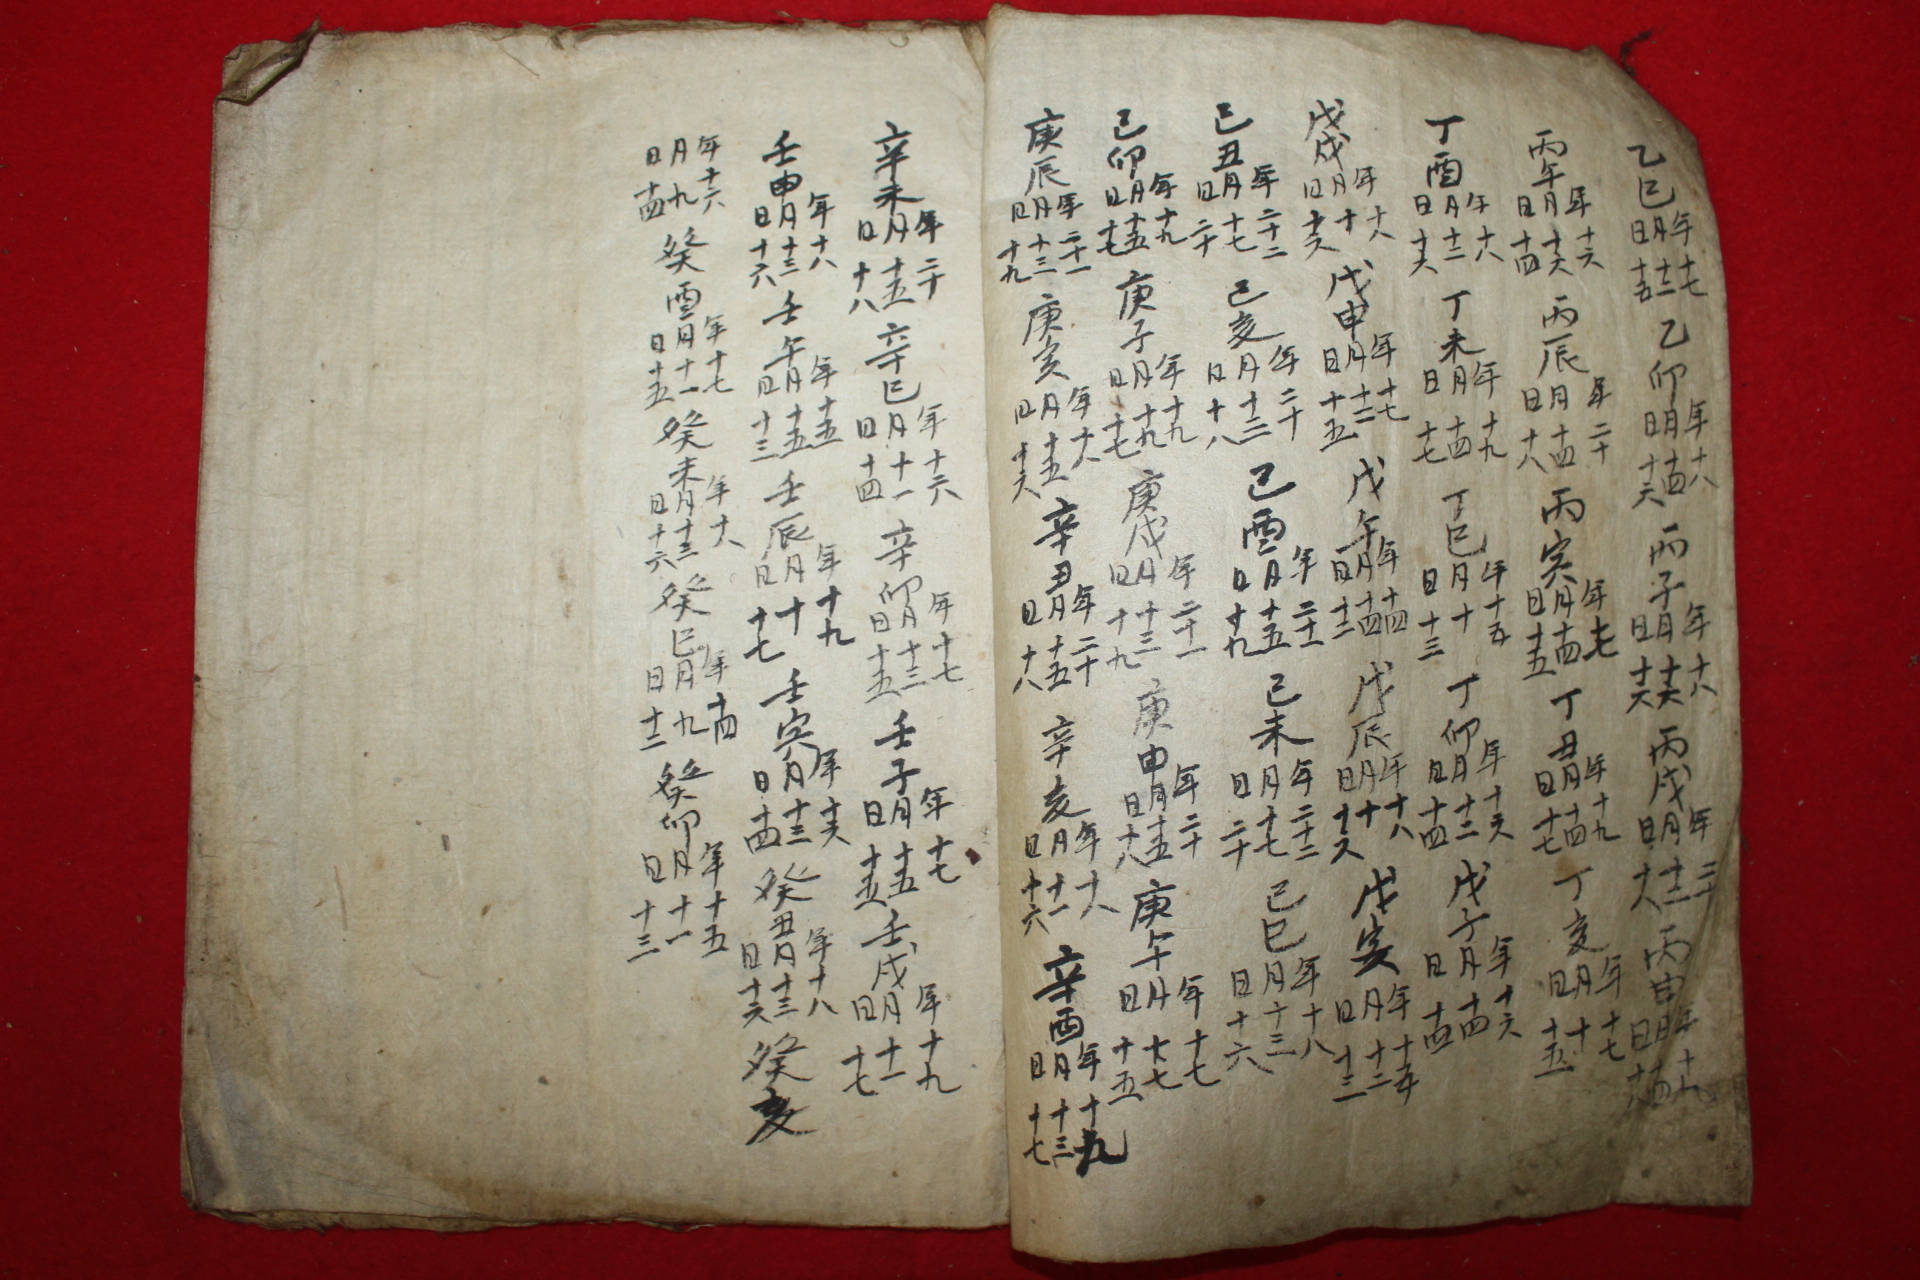 乙巳年十七月十二日十五乙卯年十八月十四日十六丙子年十八月十六日十六丙戌年二十月十二日十八丙申年十八月十四日十六
丙午年十六月十六日十四丙辰年二十月十四日十八丙寅年十七月十四日十五丁丑年十九月十四日十七丁亥年十七月十日十五
丁酉年十六月十二日十六丁未年十九月十四日十七丁巳年十五月十日十三丁卯年十六月十二日十四戊子年十六月十四日十四
戊戌年十八月十日十六戊申年十七月十二日十五戊午年十四月十四日十二戊辰年十八月十日十六戊寅年十五月十二日十三
己丑年二十二月十七日二十己亥年二十月十三日十八己酉年二十一月十五日十九己未年二十二月十七日二十己巳年十八月十三日十六
己卯年十九月十五日十七庚子年十九月十九日十七庚戌年二十一月十三日十九庚申年二十月十五日十八庚午年十七月十七日十五
庚辰年二十一月十三日十九庚寅年十八月十五日十六辛丑年二十月十五日十八辛亥年十八月十一日十六辛酉年十九月十三日十七
辛未年二十月十五日十八辛巳年十六月十一日十四辛卯年十七月十三日十五壬子年十七月十五日十五壬戌年十九月十一日十七
壬申年十八月十三日十六壬午年十五月十五日十三壬辰年十九月十日十七壬寅年十六月十三日十四癸丑年十八月十三日十六癸亥
年十六月九日十四癸酉年十七月十一日十五癸未年十八月十三日十六癸巳年十四月九日十二癸卯年十五月十一日十三